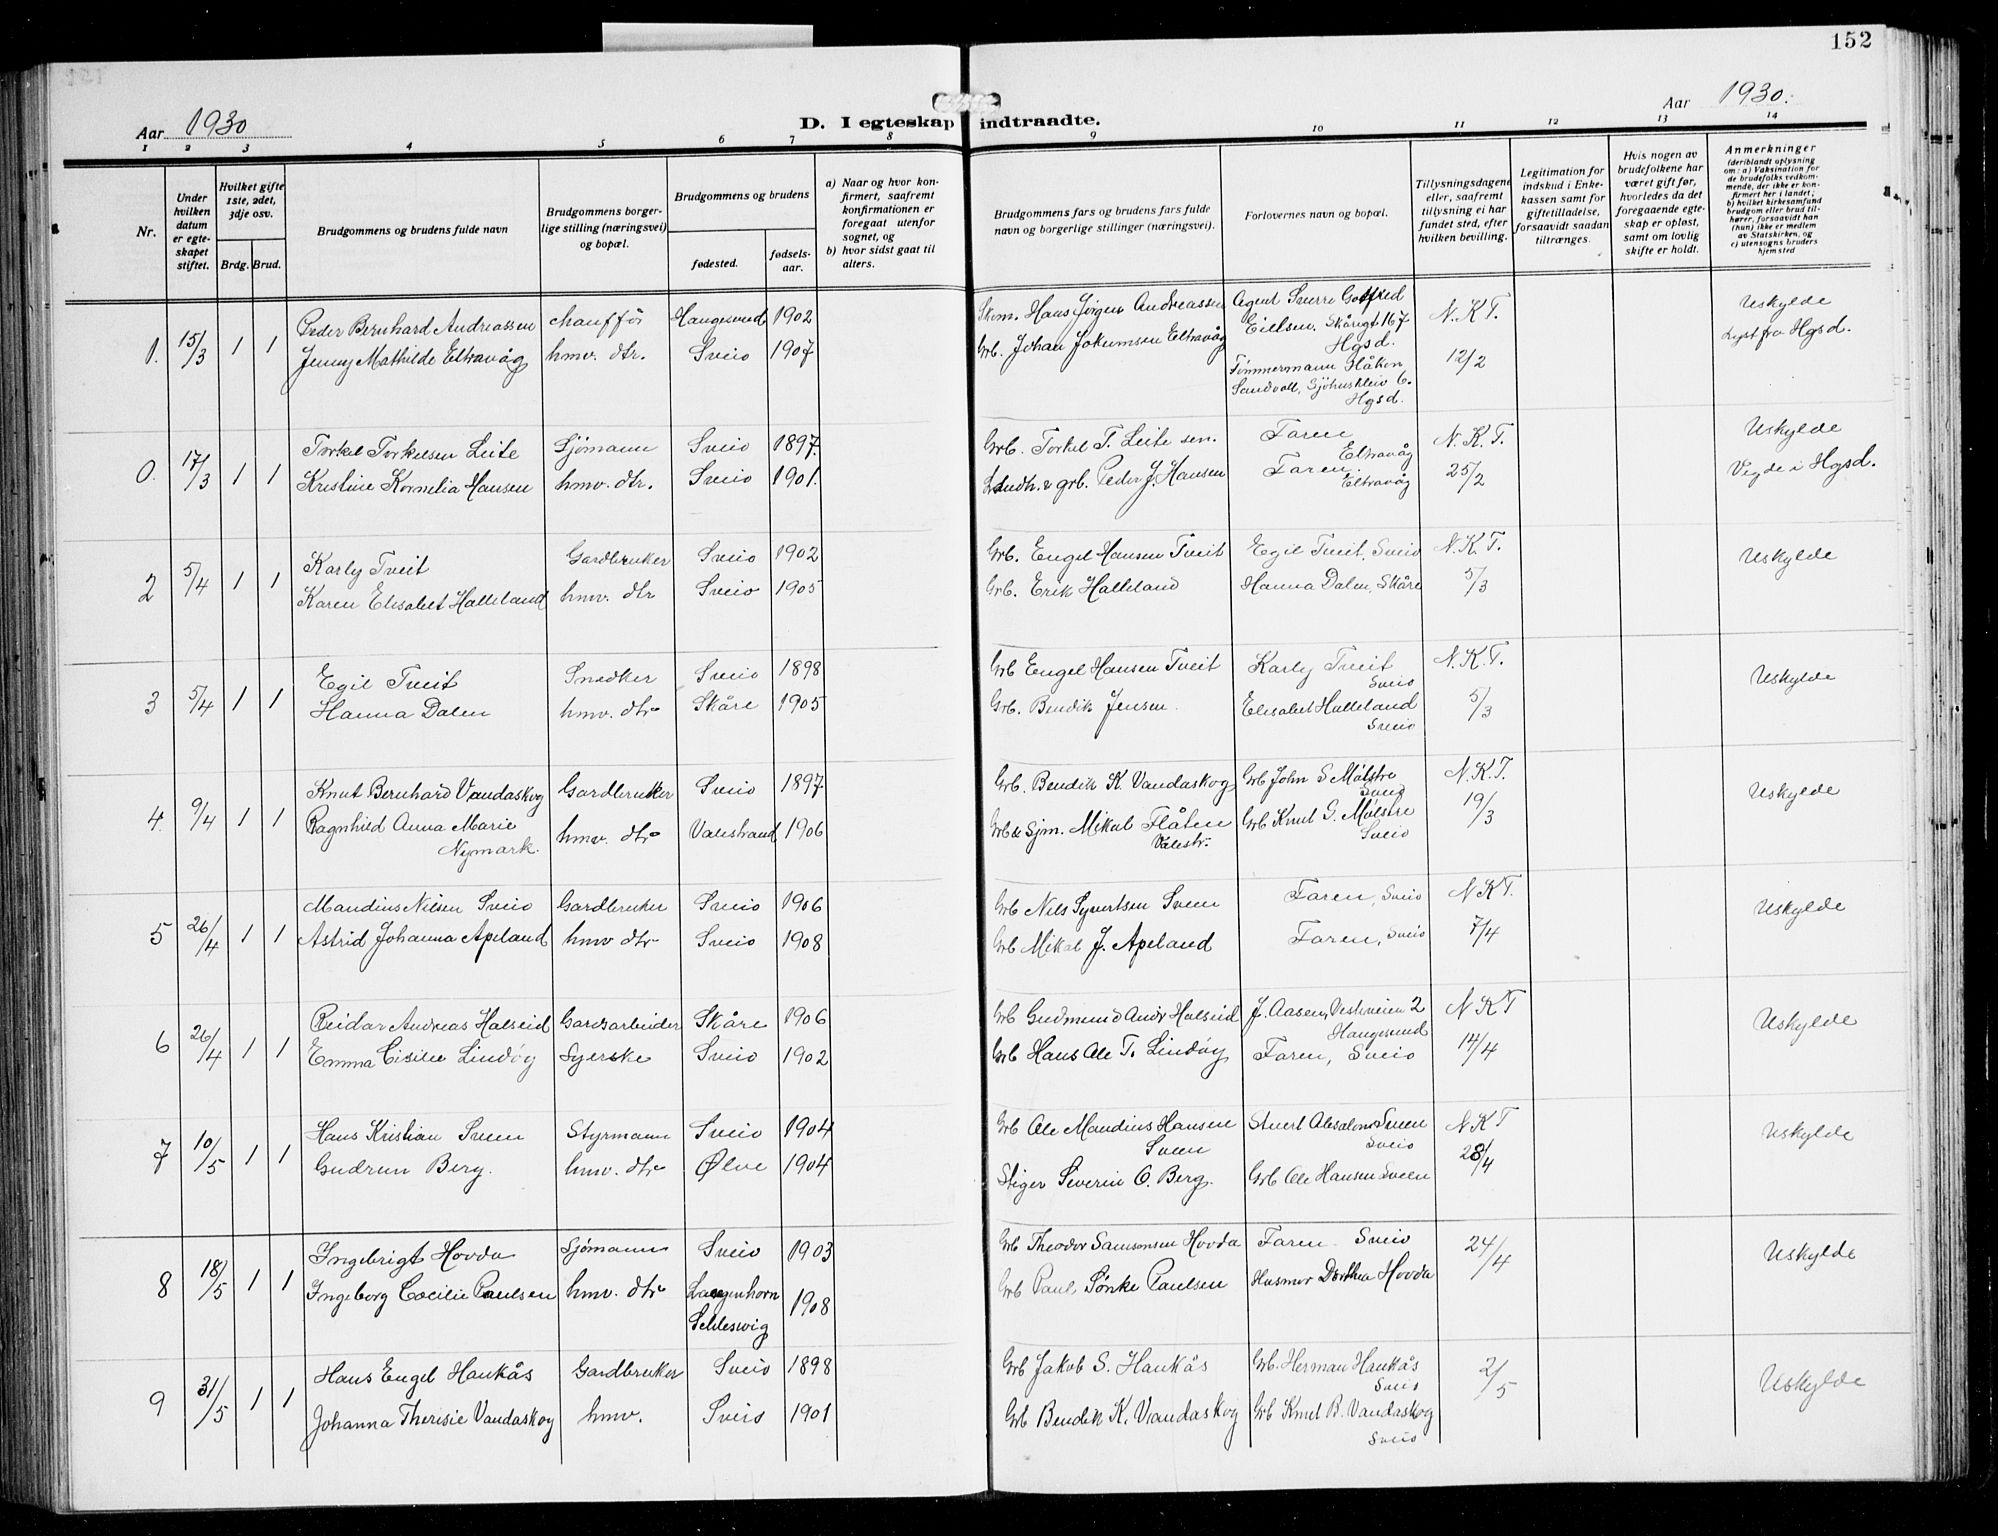 152
Aar 1930
D. I egteskap indtraadte.
Aar 1930.
1 2 3 4 5 6 7 8 9 10 11 12 13 14
Nr.
Under hvilken datum er egteskapet stiftet.
Hvilket gifte 1ste, 2det, 3dje osv.
Brdg. Brud.
Brudgommens og brudens fulde navn
Brudgommens borgerlige stilling (næringsvei) og bopæl.
Brudgommens og brudens
fødested.
fødselsaar.
a) Naar og hvor konfirmert, saafremt konfirmationen er foregaat utenfor sognet, og
b) hvor sidst gaat til alters.
Brudgommens fars og brudens fars fulde navn og borgerlige stillinger (næringsvei).
Forlovernes navn og bopæl.
Tillysningsdagene eller, saafremt tillysning ei har fundet sted, efter hvilken bevilling.
Legitimation for indskud i Enkekassen samt for giftetilladelse, forsaavidt saadan tiltrænges.
Hvis nogen av brudefolkene har været gift før, hvorledes da det foregaaende egteskap er opløst, samt om lovlig skifte er holdt.
Anmerkninger
(deriblandt oplysning om: a) Vaksination for de brudefolks vedkommende, der ikke er konfirmert her i landet; b) hvilket kirkesamfund brudgom eller brud tilhører, forsaavidt han (hun) ikke er medlem av Statskirken, og c) utensogns bruders hjemsted
1. 15/3 1 1 Peder Bernhard Andreassen chauffør Haugesund 1902 Skom. Hans Jørgen Andreassen Agent Sverre Gotfred Eielsen, Skåregt 167 Hgsd. N.K.T. Uskylde
Jenny Mathilde Eltravåg hmv. dtr. Sveio 1907 Grb. Johan Jokumsen Eltravåg Tømmermann Håkon Sandvoll, Sjøhuskleiv 6. Hgsd. 12/2 Lyst fra Hgsd.
0. 17/3 1 1 Torkel Torkelsen Leite Sjømann Sveio 1897 Grb. Torkel T. Leite sen. Faren Eltravåg N.K.T. Uskylde
Kristine Kornelia Hansen hmv. dtr. Sveio 1901. Landh. & grb. Peder J. Hansen Faren. Eltravåg 25/2 Vigde i Hgsd.
2 5/4 1 1 Karly Tveit Gardbruker Sveio 1902 Grb. Engel Hansen Tveit Egil Tveit, Sveio N.K.T. Uskylde
Karen Elisabet Halleland hmv. dtr Sveio 1905 Grb. Erik Halleland Hanna Dalen, Skåre 5/3
3 5/4 1 1 Egil Tveit Snedker Sveio 1898 Grb Engel Hansen Tveit Karly Tveit Sveio N.K.T. Uskylde
Hanna Dalen hmv. dtr Skåre 1905 Grb. Bendik Jensen. Elisabet Halleland Sveio 5/3
4. 9/4 1 1 Knut Bernhard Vandaskog Gardbruker Sveio 1897 Grb. Bendik K. Vandaskog Grb John S Mølstre Sveio N.K.T. Uskylde
Ragnhild Anna Marie Nymark. hmv. dtr Valestrand 1906 Grb & Sjm. Mikal Flåten Valestr. Grb Knut G. Mølstre Sveio 19/3
5 26/4 1 1 Mandius Nilsen Sveio Gardbruker Sveio 1906 Grb Nils Syvertsen Sveen Faren, Sveio N.K.T. Uskylde
Astrid Johanna Apeland hmv dtr Sveio 1908 Grb Mikal J. Apeland Faren, Sveio 7/4
6 26/4 1 1 Reidar Andreas Halseid Gardsarbeider Skåre 1906 Grb Gudmund Andr Halseid J. Aasen, Vestheien 2 Haugesund N K T Uskylde
Emma Cisilie Lindøy Syerske Sveio 1902 Grb Hans Ole T. Lindøy Faren, Sveio 14/4
7 10/5 1 1 Hans Kristian Sveen Styrmann Sveio 1904 Grb Ole Mandius Hansen Sveen Stuert Absalon Sveen Sveio N.K T Uskylde
Gudrun Berg. hmv. dtr Ølve 1904 Stiger Severin O. Berg. Grb Ole Hansen Sveen 28/4
8 18/5 1 1 Ingebrigt Hovda Sjømann Sveio 1903 Grb Theodor Samsonsen Hovda Faren Sveio 24/4 Uskylde
Ingeborg Cecilie Paulsen hmv. dtr Langenhorn Schleswig 1908 Grb Paul Sönke Paulsen Husmor Dorthea Hovda
9 31/5 1 1 Hans Engel Haukås Gardbruker Sveio 1898 Grb Jakob S. Haukås Grb. Herman Haukås Sveio 2/5 Uskylde
Johanna Theresie Vandaskog hmv. Sveio 1901 Grb Bendik K. Vandaskog Grb Knut B. Vandaskog Sveio